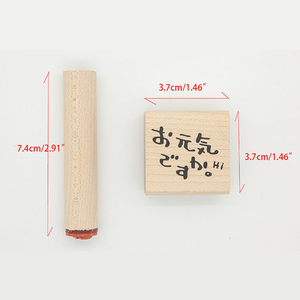 3.7cm/1.46″
7.4cm/2.91″
お元気
ですか。Hi
3.7cm/1.46″